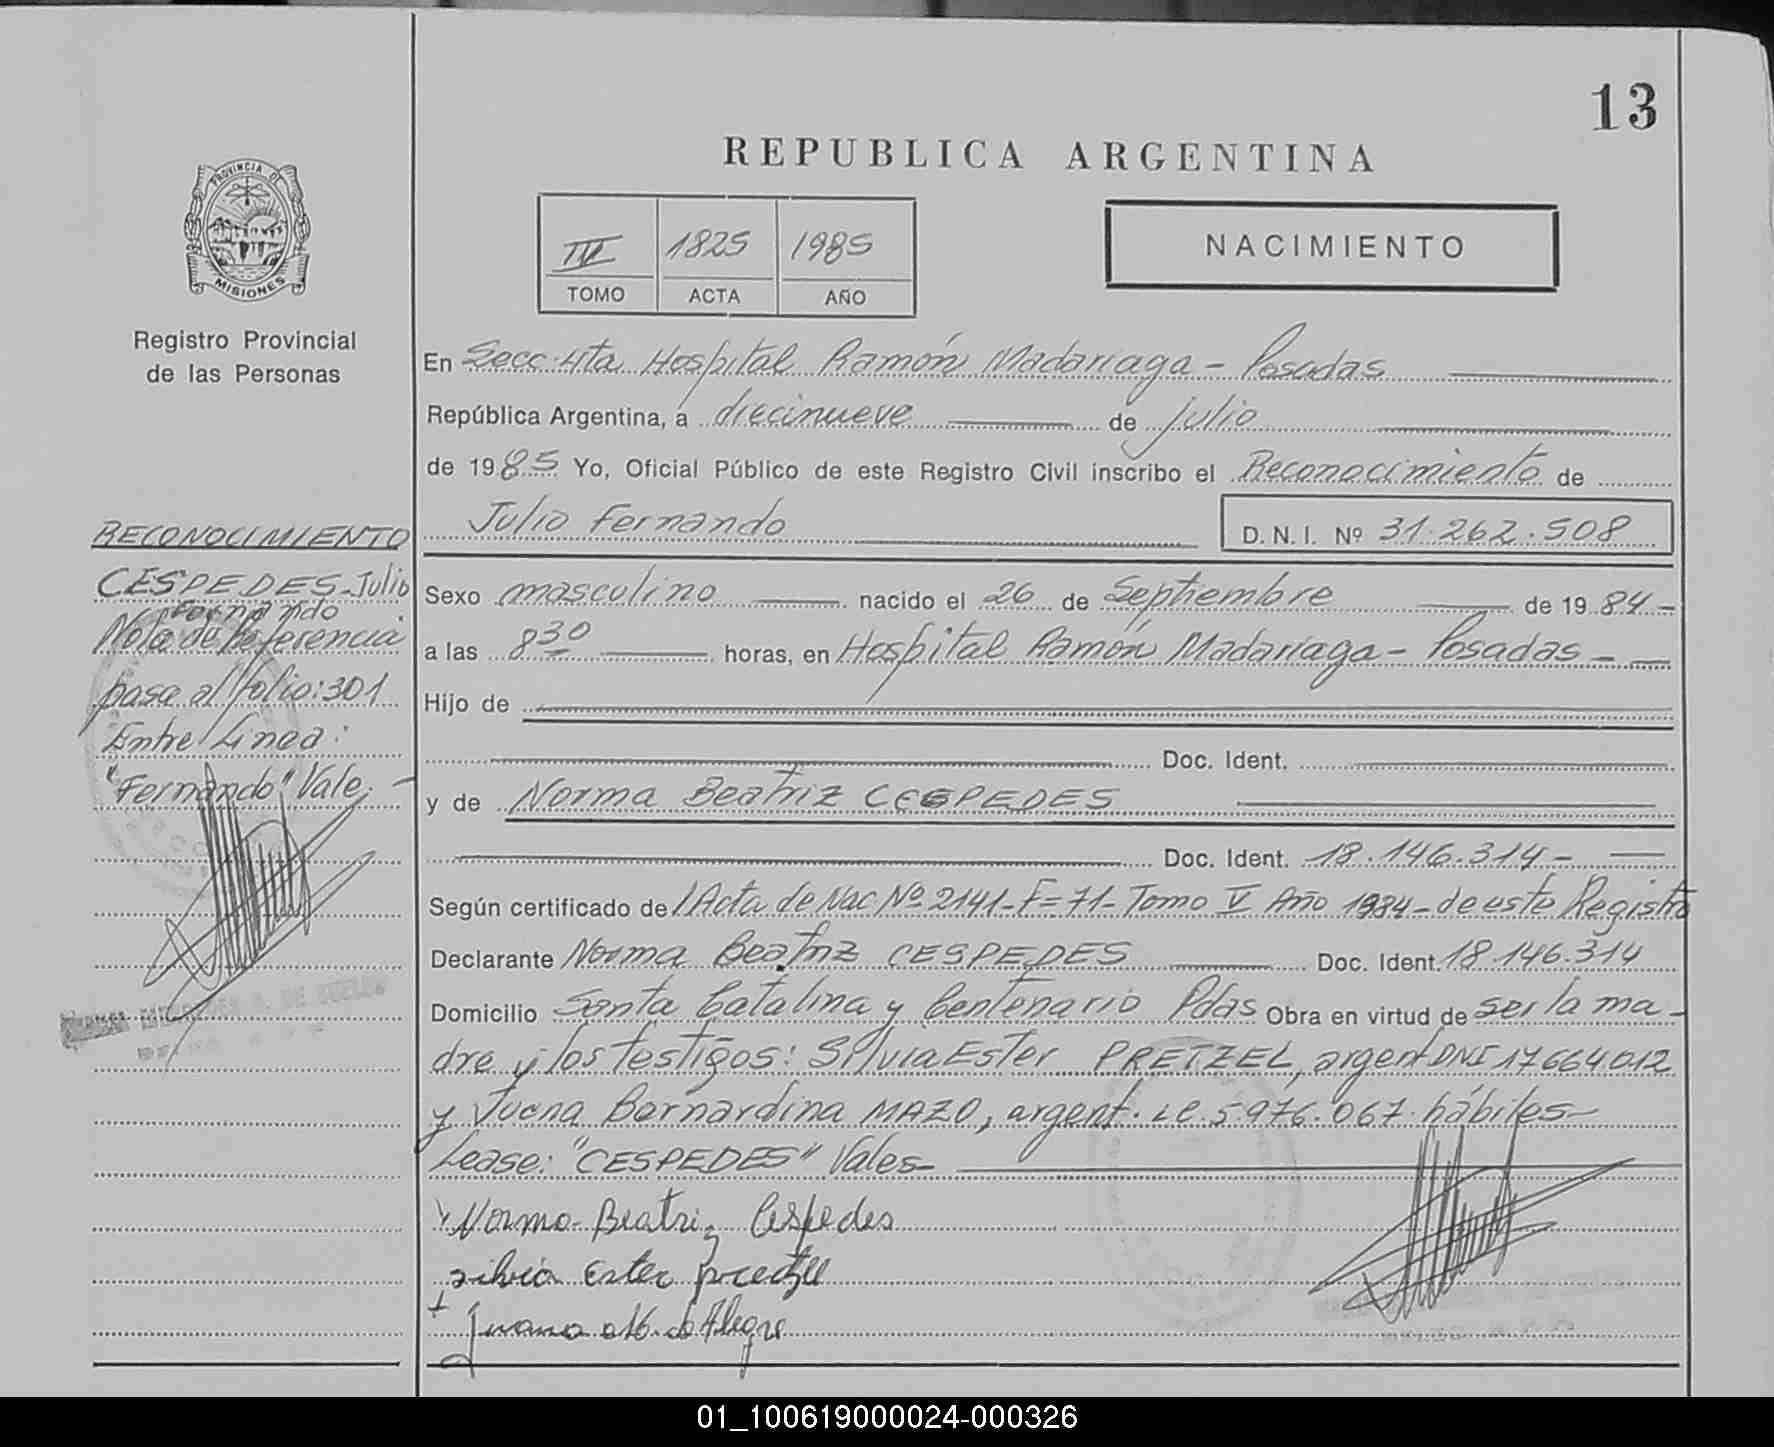 13
REPUBLICA ARGENTINA
PROVINCIA D
MISIONES
Registro Provincial
de las Personas
IV 1825 1985
TOMO ACTA AÑO
NACIMIENTO
En Secc. 4ta Hospital Ramón Madariaga - Posadas
República Argentina, a diecinueve de julio
de 1985 Yo, Oficial Público de este Registro Civil inscribo el Reconocimiento de
Julio Fernando D.N.I. Nº 31.262.508
Sexo masculino nacido el 26 de Septiembre de 1984 -
a las 8 30 horas, en Hospital Ramón Madariaga - Posadas -
Hijo de
Doc. Ident.
y de Norma Beatriz CESPEDES
Doc. Ident. 18.146.314 -
Según certificado de Acta de Nac Nº 2141 - F=71 - Tomo V Año 1984 - de este Registro
Declarante Norma Beatriz CESPEDES Doc. Ident. 18.146.314
Domicilio Santa Catalina y Centenario Pdas Obra en virtud de ser la ma-
dre y los testigos: Silvia Ester PRETZEL, argent DNI 17664012
y Juana Bernardina MAZO, argent. LC. 5.976.067 hábiles -
Lease: "CESPEDES" Vales -
Norma Beatriz Cespedes
silvia Ester
Juana M. de Alegre
RECONOCIMIENTO
CESPEDES - Julio
Fernando
Nota de Referencia
pasa al folio: 301
Entre Linea:
"Fernando" Vale. -
01_100619000024-000326